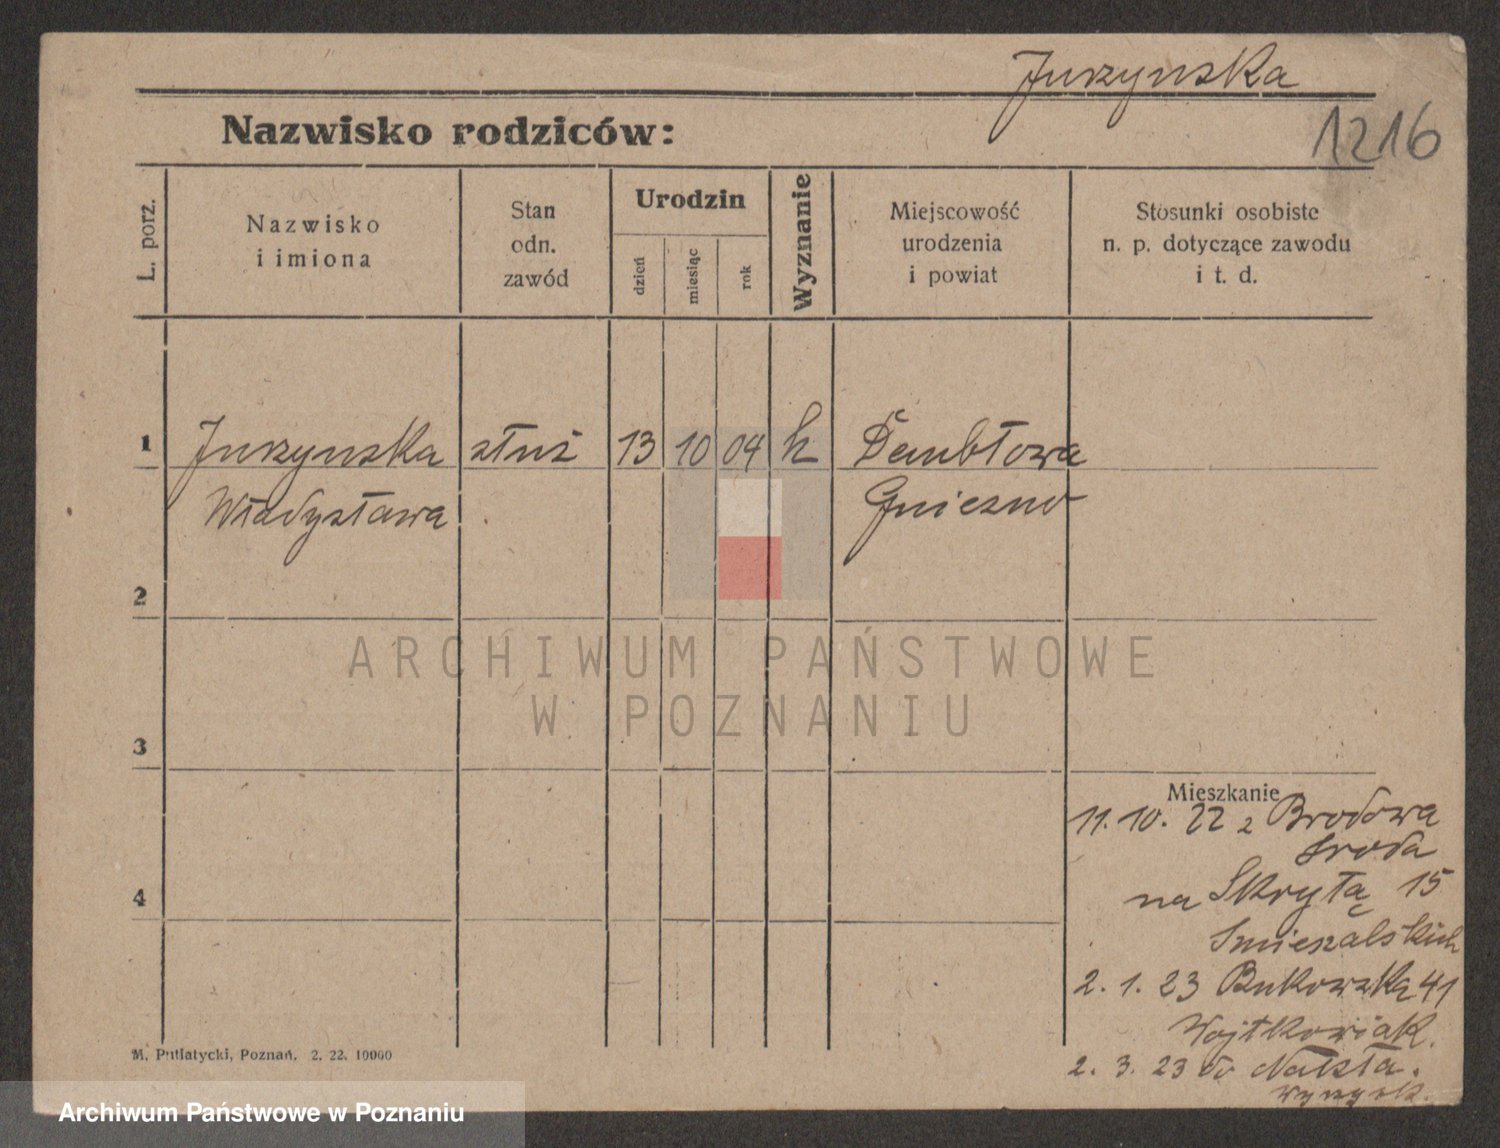 Jurzynska
1216
Nazwisko rodziców:
L. porz.
Nazwisko
i imiona
Stan
odn.
zawód
Urodzin
dzień
miesiąc
rok
Wyznanie
Miejscowość
urodzenia
i powiat
Stosunki osobiste
n. p. dotyczące zawodu
i t. d.
1 Jurzynska służ 13 10 04 k Dembłowa
Władysława Gniezno
2
3
4
ARCHIWUM PAŃSTWOWE
W POZNANIU
Mieszkanie
11. 10. 22 z Brodowa
Sroda
na Skrytą 15
2. 1. 23 Bukowską 41
Wojtkowiak.
2. 3. 23 do Nakła.
M. Putiatycki, Poznań. 2. 22. 10000
Archiwum Państwowe w Poznaniu